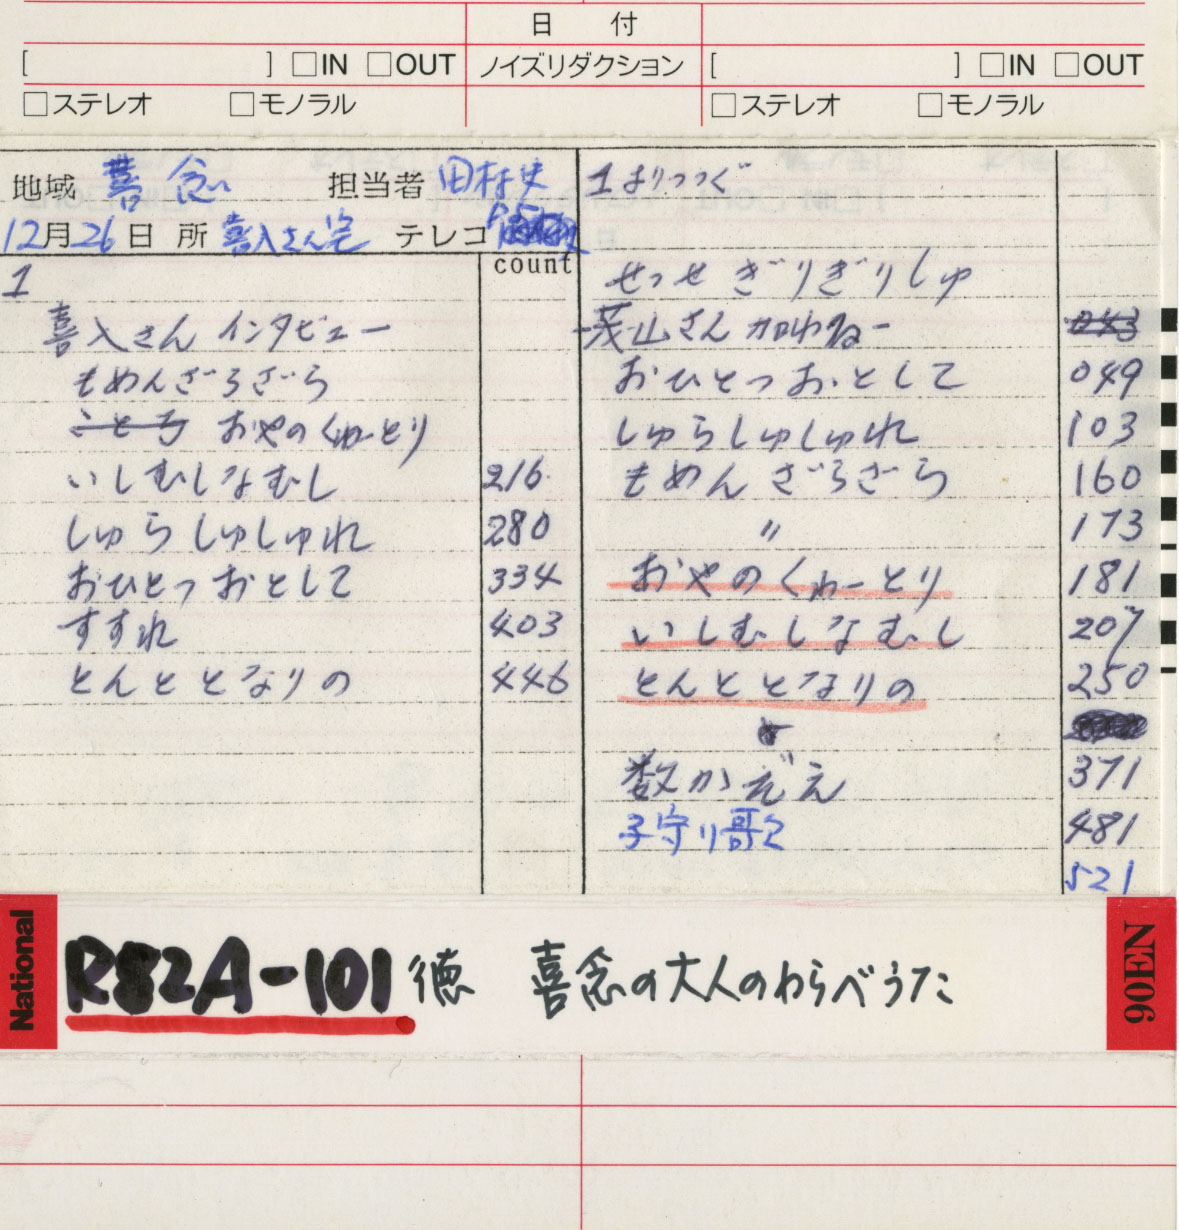 日 付
[ ] □IN □OUT ノイズリダクション [ ] □IN □OUT
□ステレオ □モノラル □ステレオ □モノラル
地域 喜念 担当者 田村史
12月26日 所 喜入さん宅 テレコ
count
1
喜入さん インタビュー
もめんざらざら
こともち おやのくゎーとり
いしむしなむし 216
しゅらしゅしゅれ 280
おひとつおとして 334
すすれ 403
とんととなりの 446
1よりつづく
せっせ ぎりぎりしゅ
-茂山さん加わる- 043
おひとつおとして 049
しゅらしゅしゅれ 103
もめん ざらざら 160
〃 173
おやのくゎーとり 181
いしむしなむし 207
とんととなりの 250
数かぞえ 371
子守り歌 481
521
National
R82A-101 徳 喜念の大人のわらべうた
90EN